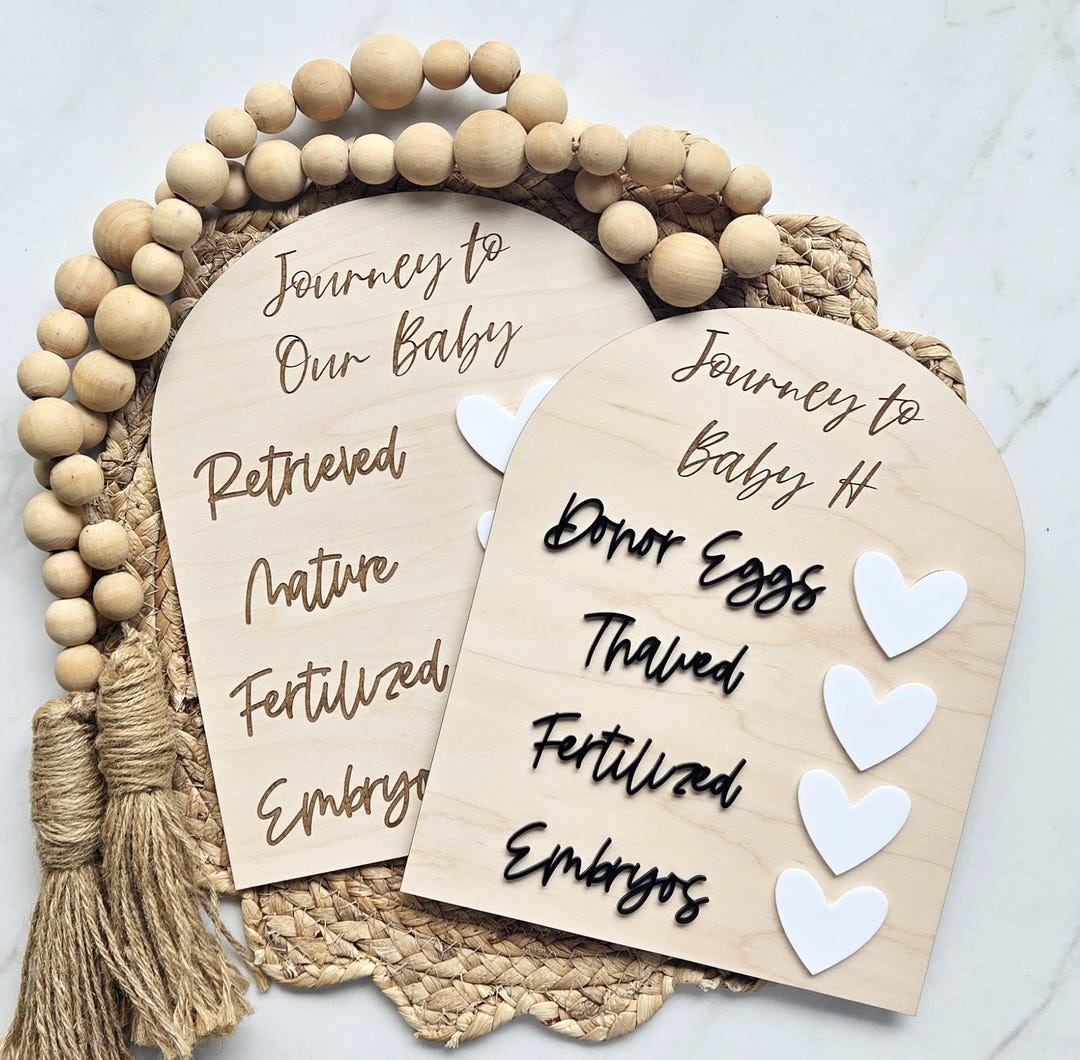 Journey to
Our Baby
Retrieved
Mature
Fertilized
Embryo
Journey to
Baby H
Donor Eggs
Thawed
Fertilized
Embryos